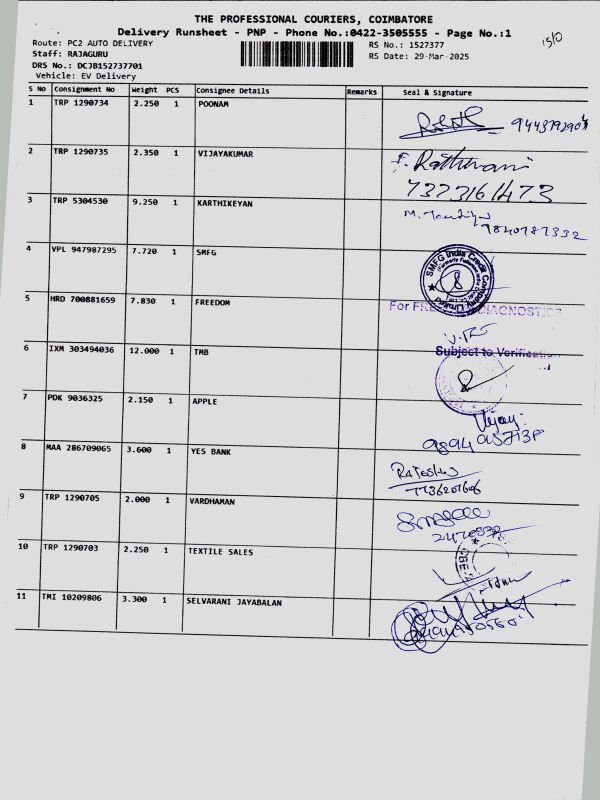 THE PROFESSIONAL COURIERS, COIMBATORE
Delivery Runsheet - PNP - Phone No.:0422-3505555 - Page No.:1
Route: PC2 AUTO DELIVERY RS No.: 1527377
Staff: RAJAGURU RS Date: 29-Mar-2025
DRS No.: DCJB152737701
Vehicle: EV Delivery
S No Consignment No Weight PCS Consignee Details Remarks Seal & Signature
1 TRP 1290734 2.250 1 POONAM
2 TRP 1290735 2.350 1 VIJAYAKUMAR
7373161473
3 TRP 5304530 9.250 1 KARTHIKEYAN
9840787332
4 VPL 947987295 7.720 1 SMFG SMFG India Credit Company Limited
5 HRD 700881659 7.830 1 FREEDOM
For DIAGNOSTICS
6 IXM 303494036 12.000 1 TMB Subject to Verification
7 PDK 9036325 2.150 1 APPLE
Vijay
8 MAA 286709065 3.600 1 YES BANK
9 TRP 1290705 2.000 1 VARDHAMAN
10 TRP 1290703 2.250 1 TEXTILE SALES
11 TMI 10209806 3.300 1 SELVARANI JAYABALAN